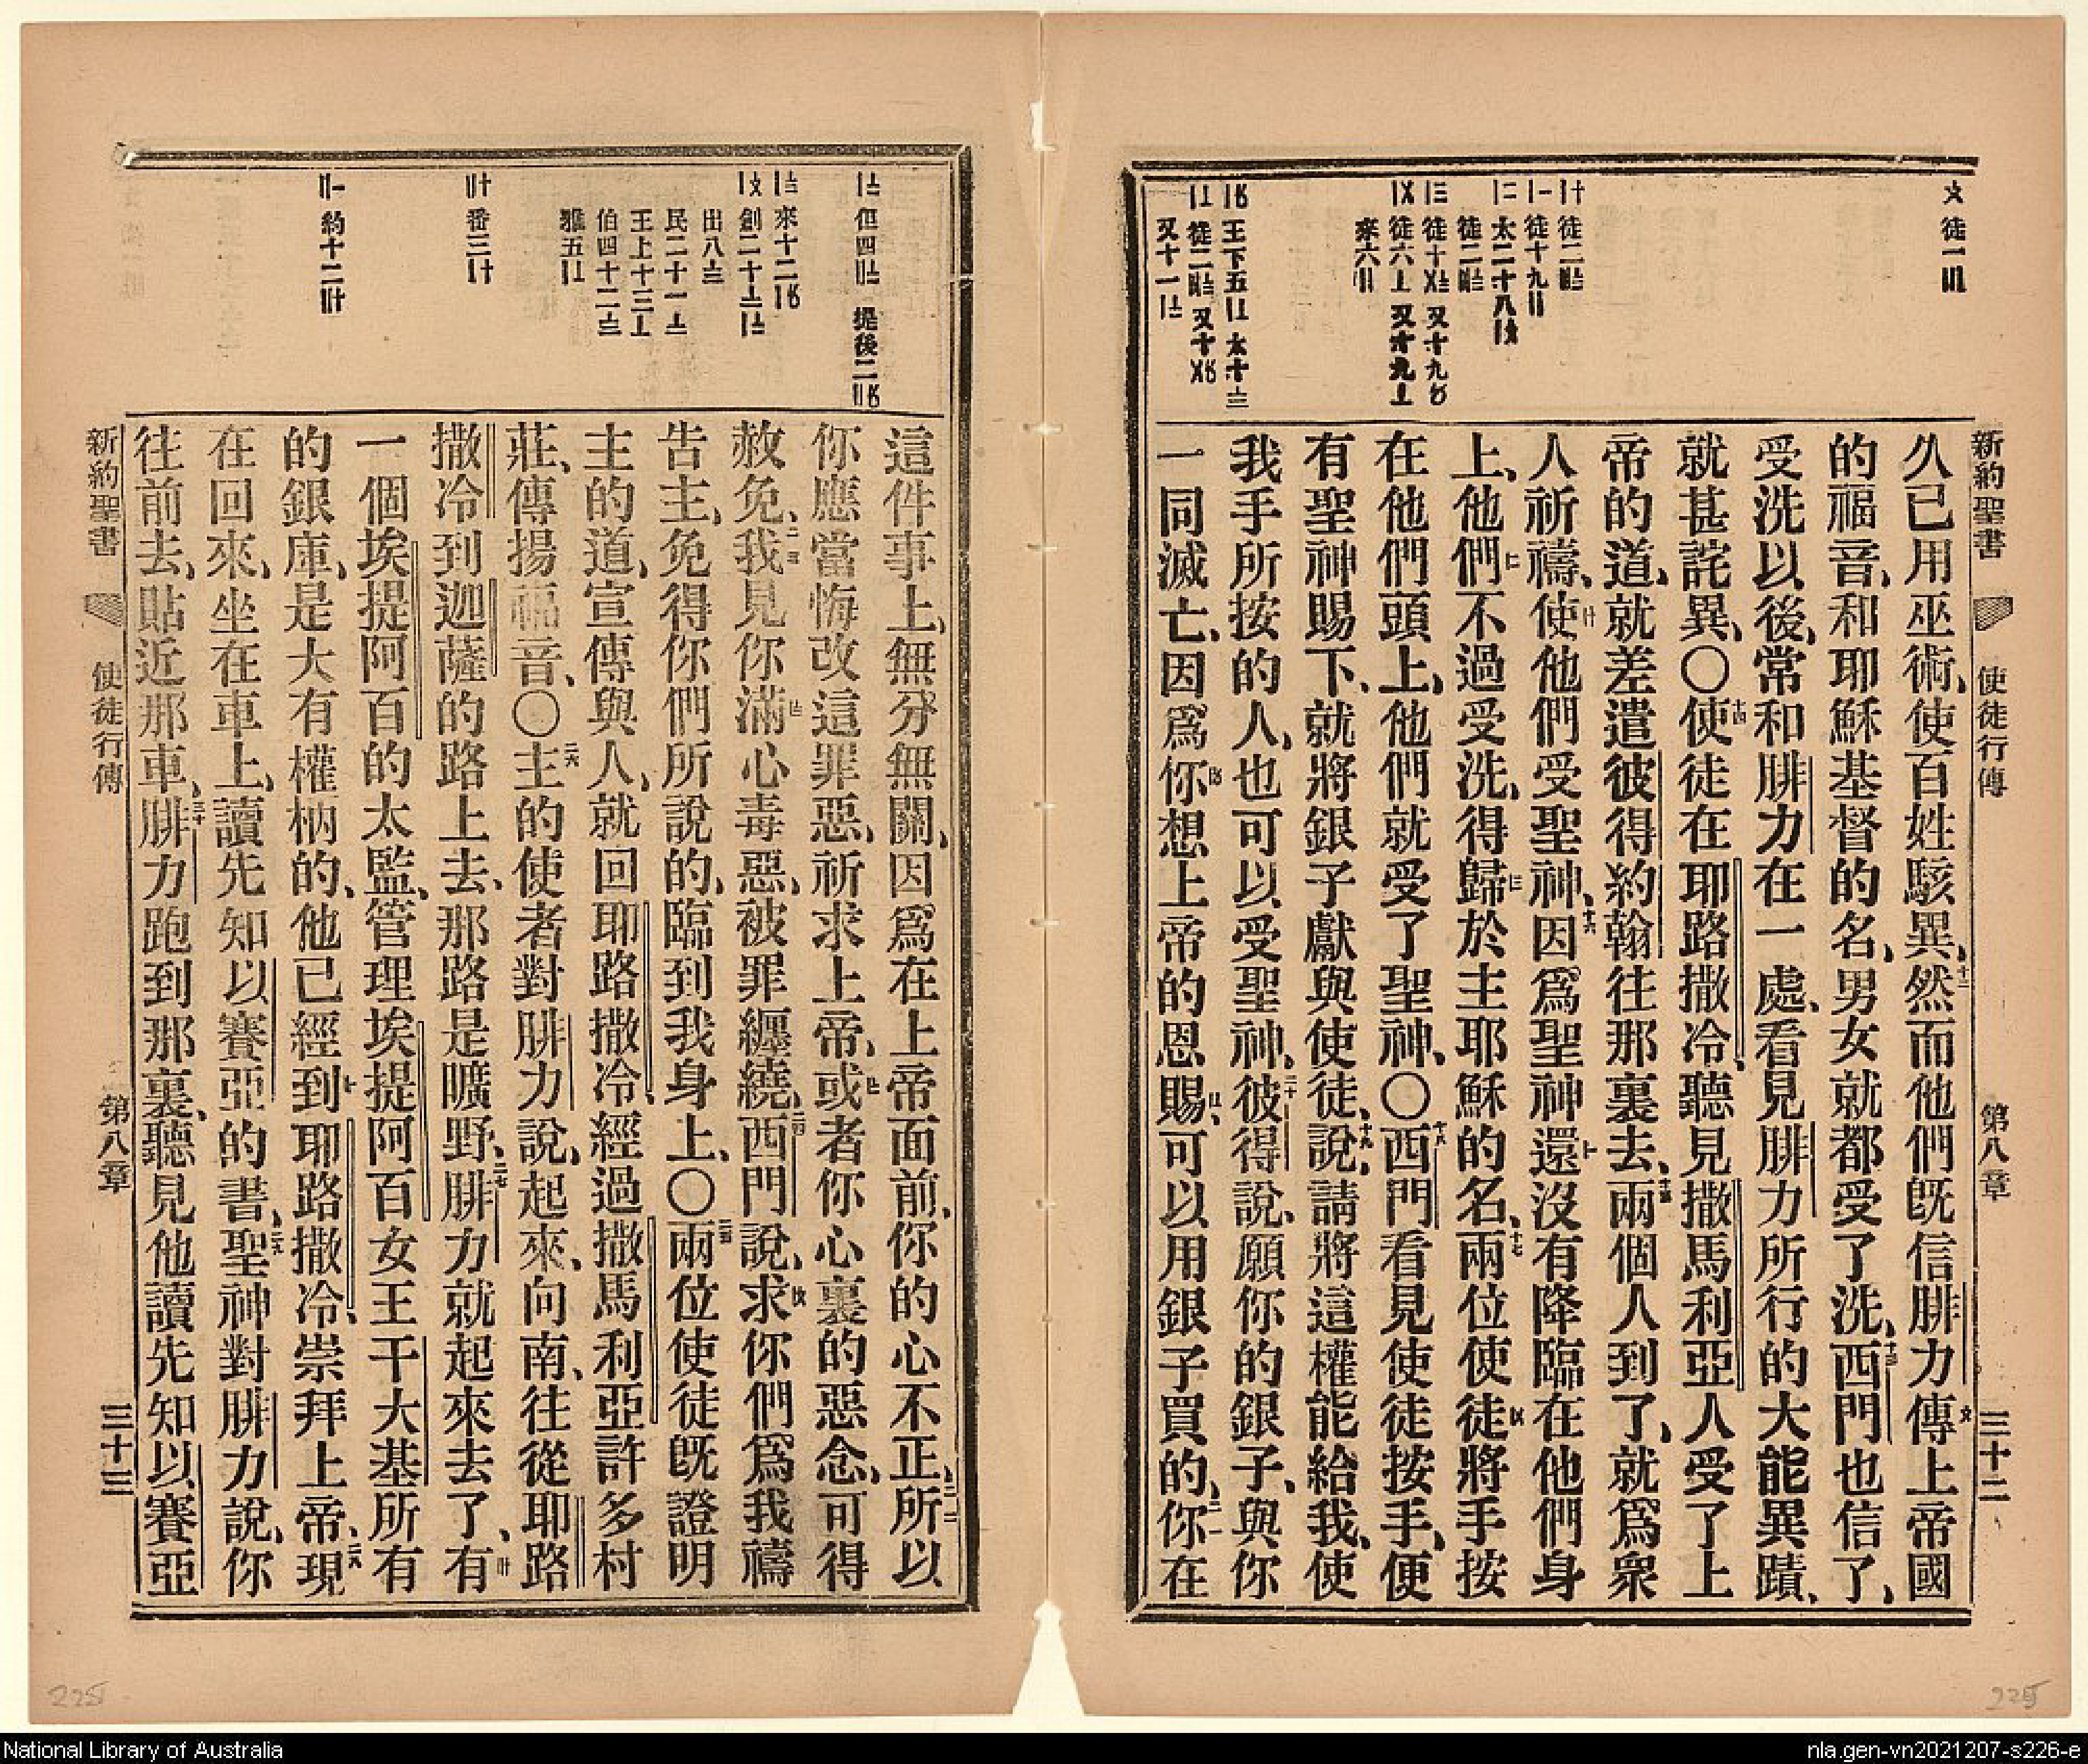 新約聖書 使徒行傳 第八章 三十二
久已用巫術、使百姓駭異、十二然而他們旣信腓力傳上帝國
的福音、和耶穌基督的名、男女就都受了洗、十三西門也信了、
受洗以後、常和腓力在一處、看見腓力所行的大能異蹟、
就甚詫異、〇十四使徒在耶路撒冷、聽見撒馬利亞人受了上
帝的道、就差遣彼得約翰往那裏去、十五兩個人到了、就爲衆
人祈禱、使他們受聖神、十六因爲聖神還沒有降臨在他們身
上、他們不過受洗、得歸於主耶穌的名、十七兩位使徒將手按
在他們頭上、他們就受了聖神、〇十八西門看見使徒按手、便
有聖神賜下、就將銀子獻與使徒、十九說、請將這權能給我、使
我手所按的人、也可以受聖神、二十彼得說、願你的銀子、與你
一同滅亡、因爲你想上帝的恩賜、可以用銀子買的、二一你在
這件事上、無分無關、因爲在上帝面前、你的心不正、二二所以
你應當悔改這罪惡、祈求上帝、或者你心裏的惡念、可得
赦免、二三我見你滿心毒惡、被罪纏繞、二四西門說、求你們爲我禱
告主、免得你們所說的、臨到我身上、〇二五兩位使徒旣證明
主的道、宣傳與人、就回耶路撒冷、經過撒馬利亞許多村
莊、傳揚福音、〇二六主的使者對腓力說、起來、向南、往從耶路
撒冷到迦薩的路上去、那路是曠野、二七腓力就起來去了、有
一個埃提阿百的太監、管理埃提阿百女王干大基所有
的銀庫、是大有權柄的、他已經到耶路撒冷、崇拜上帝、二八現
在回來、坐在車上、讀先知以賽亞的書、二九聖神對腓力說、你
往前去、貼近那車、三十腓力跑到那裏、聽見他讀先知以賽亞
新約聖書 使徒行傳 第八章 三十三
225
225
National Library of Australia
nla.gen-vn2021207-s226-e